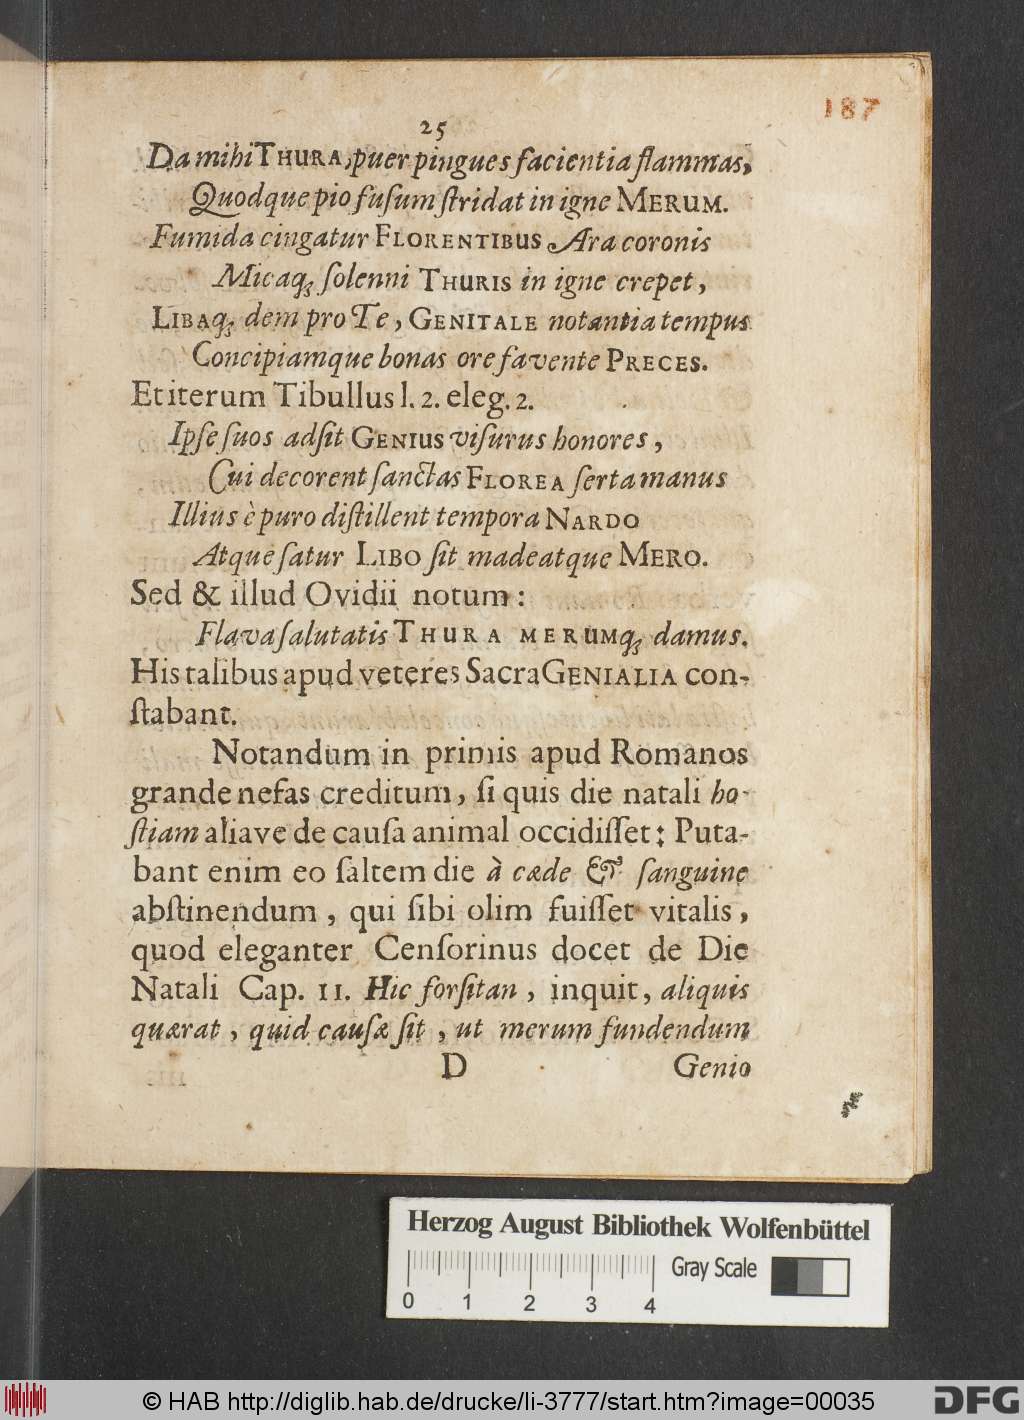 187
25
Da mihi THURA, puer pingues facientia flammas,
Quodque pio fuſum ſtridat in igne MERUM.
Fumida cingatur FLORENTIBUS Ara coronis
Micaq; ſolenni THURIS in igne crepet,
LIBAq; dem pro Te, GENITALE notantia tempus
Concipiamque bonas ore favente PRECES.
Et iterum Tibullus l. 2. eleg. 2.
Ipſe ſuos adſit GENIUS viſurus honores,
Cui decorent ſanctas FLOREA ſerta manus
Illius è puro diſtillent tempora NARDO
Atque ſatur LIBO ſit madeatque MERO.
Sed & illud Ovidii notum:
Flava ſalutatis THURA MERUMq; damus.
His talibus apud veteres Sacra GENIALIA con-
ſtabant.
Notandum in primis apud Romanos
grande nefas creditum, ſi quis die natali ho-
ſtiam aliave de cauſa animal occidiſſet: Puta-
bant enim eo ſaltem die à cæde & ſanguine
abſtinendum, qui ſibi olim fuiſſet vitalis,
quod eleganter Cenſorinus docet de Die
Natali Cap. 11. Hic forſitan, inquit, aliquis
quærat, quid cauſæ ſit, ut merum fundendum
D Genio
Herzog August Bibliothek Wolfenbüttel
Gray Scale
0 1 2 3 4
© HAB http://diglib.hab.de/drucke/li-3777/start.htm?image=00035
DFG